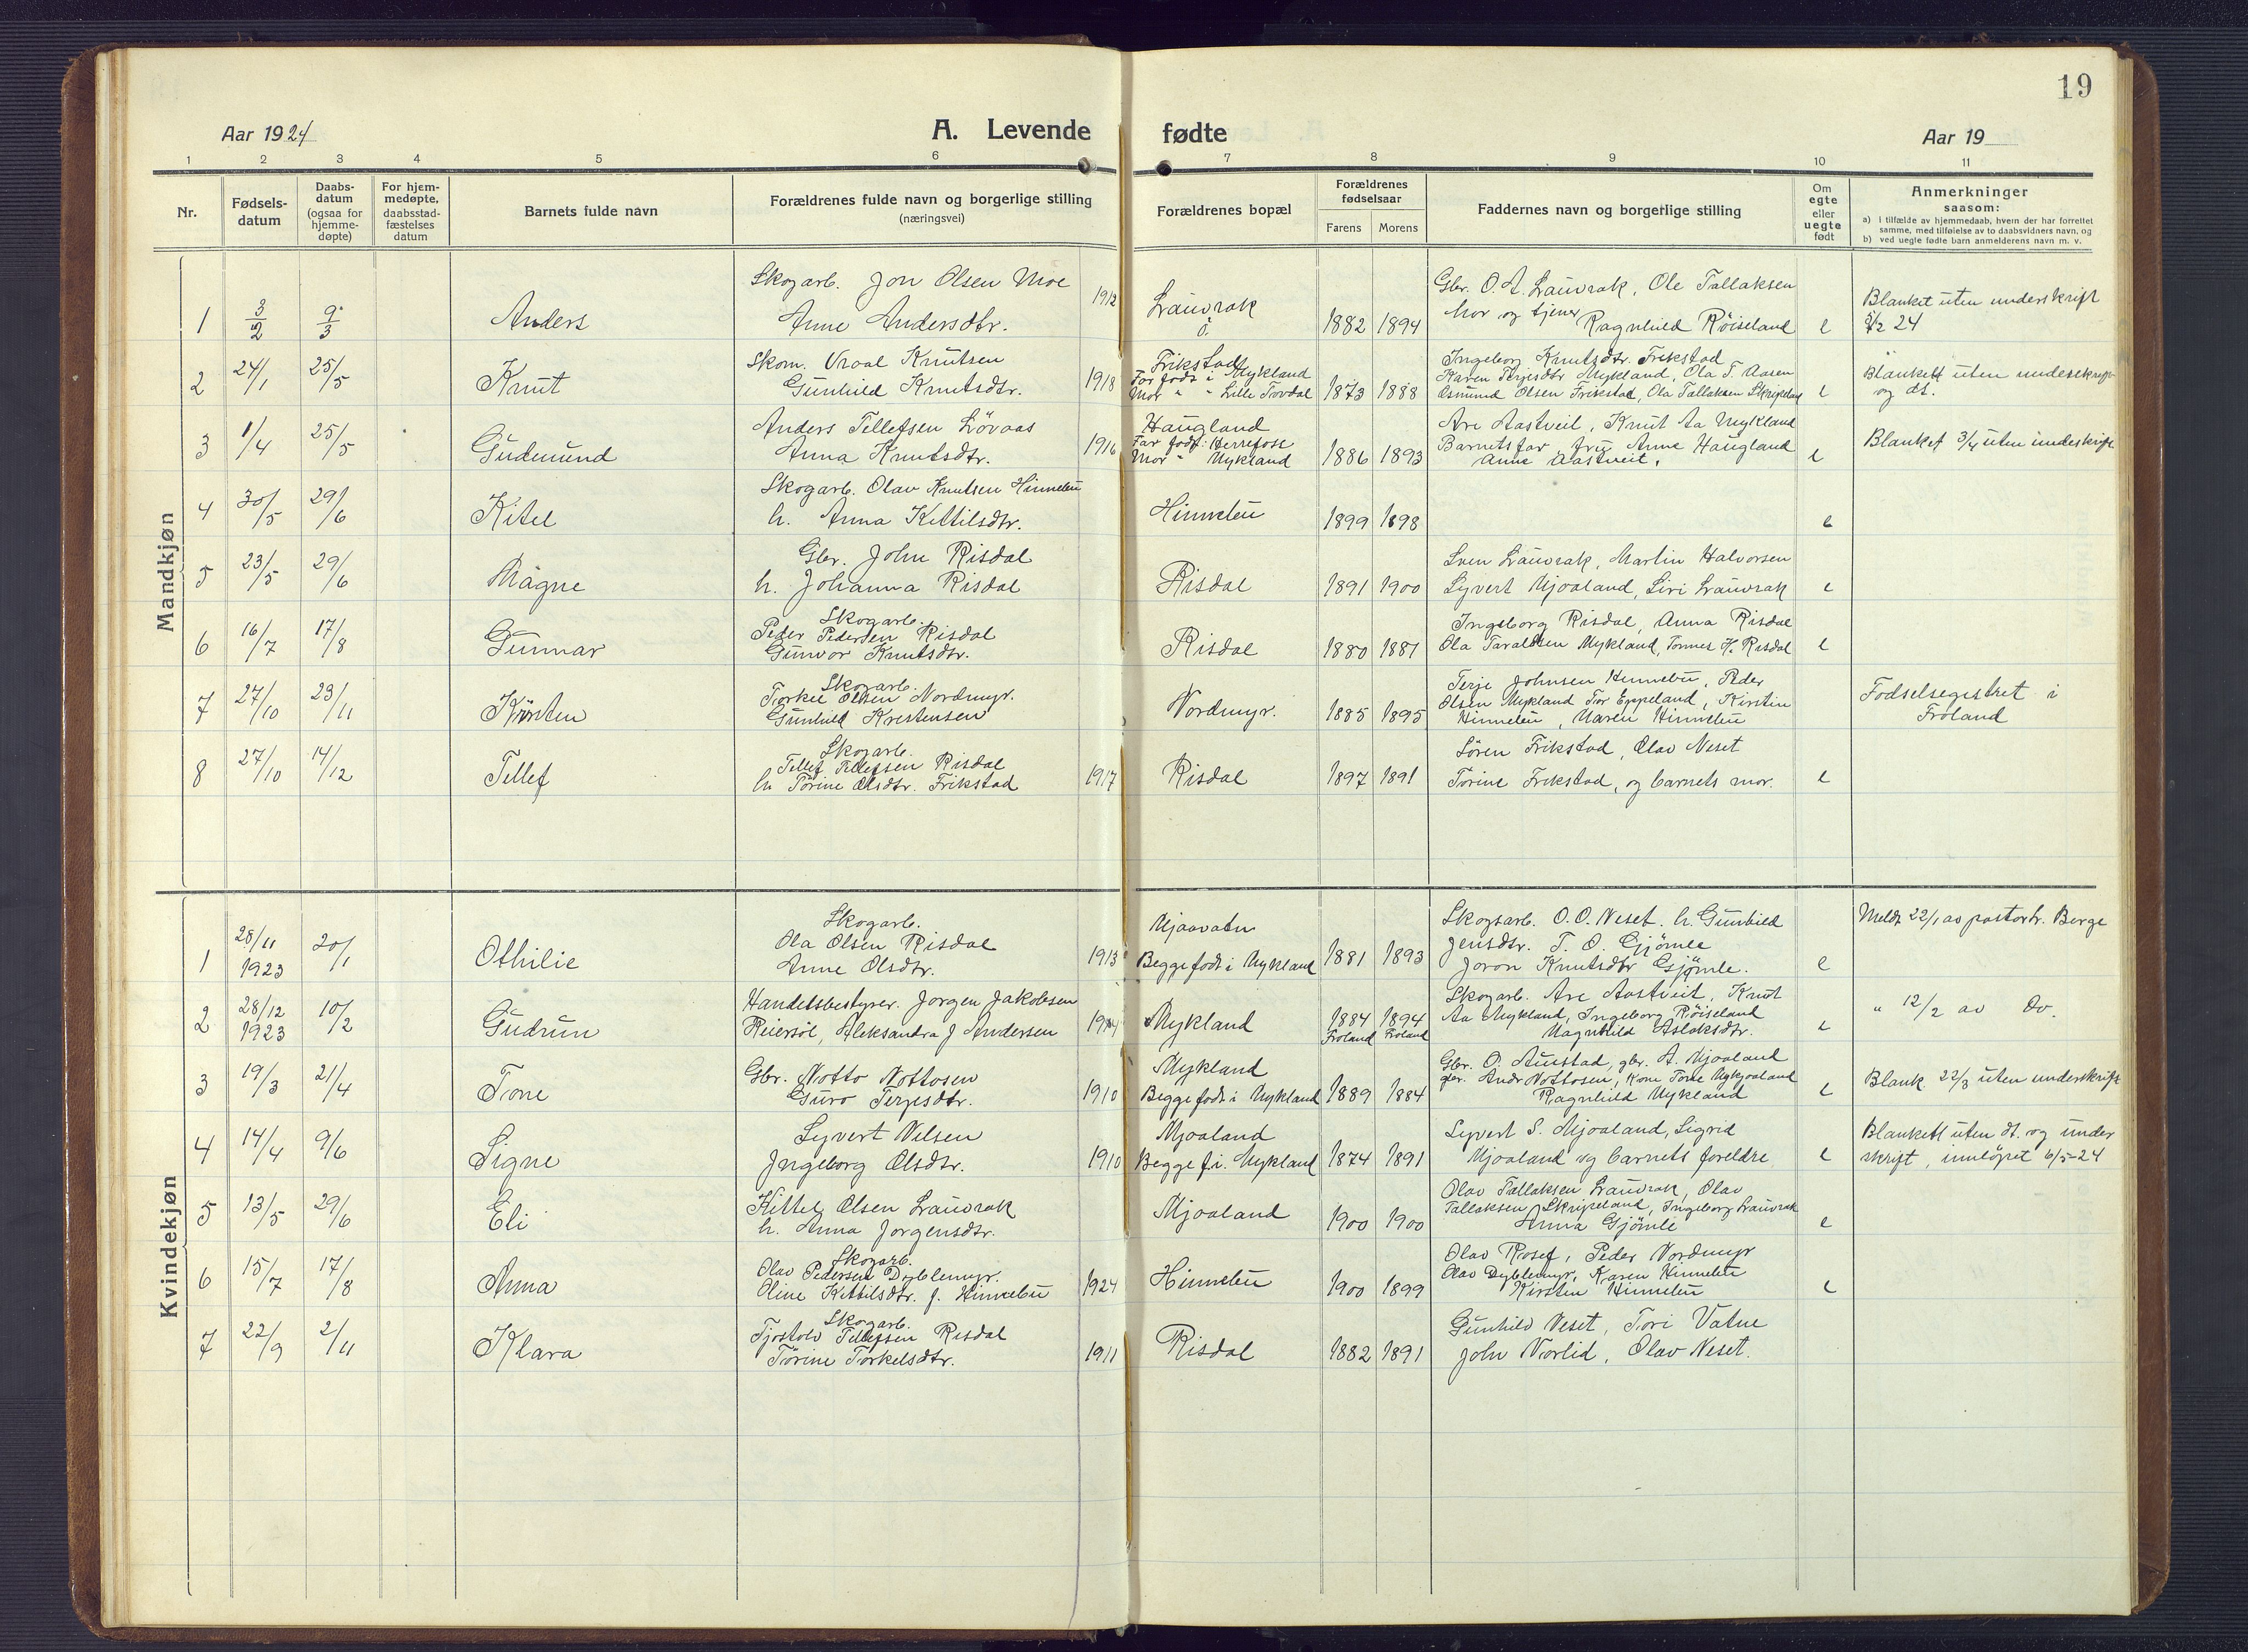 19
Aar 1924
A. Levende fødte
Aar 19
1 2 3 4 5 6 7 8 9 10 11
Nr.
Fødsels-
datum
Daabs-
datum
(ogsaa for
hjemme-
døpte)
For hjem-
medøpte,
daabsstad-
fæstelses
datum
Barnets fulde navn
Forældrenes fulde navn og borgerlige stilling
(næringsvei)
Forældrenes bopæl
Forældrenes
fødselsaar
Farens Morens
Faddernes navn og borgerlige stilling
Om
egte
eller
uegte
født
Anmerkninger
saasom:
a) i tilfælde av hjemmedaab, hvem der har forrettet
samme, med tilføielse av to daabsvidners navn, og
b) ved uegte fødte barn anmelderens navn m. v.
Mandkjøn
1 3/2 9/3 Anders
Skogarb. Jon Olsen Moe
Anne Andersdtr.
1912
Lauvrak
1882 1894
Gbr. O. A. Lauvrak, Ole Tallaksen
Mor og tjener Ragnhild Röiseland
e
Blanket uten underskrift
5/2 24
2 24/1 25/5 Knut
Skom. Vraal Knutsen
Gunhild Knutsdtr.
1918
Frikstad
Far født i Mykland
Mor " " Lille Tovdal
1873 1888
Ingeborg Knutsdtr. Frikstad
Karen Terjesdtr Mykland, Ola T. Aasen
Osmund Olsen Frikstad, Ola Tallaksen Skripeland
e
Blankett uten undeskrift
og dt.
3 1/4 25/5 Gudmund
Anders Tellefsen Lövaas
Anna Knutsdtr.
1916
Haugland
Far født: Herrefoss
Mor " Mykland
1886 1893
Are Aastveit, Knut Aa Mykland
Barnets far frig Anne Haugland
Anne Aastveit.
e
Blanket 3/4 uten undeskrift
4 30/5 29/6 Kitel
Skogarb. Olav Knutsen Hinnebu
h. Anna Kittilsdtr.
Hinnebu
1899 1898
e
5 23/5 29/6 Magne
Gbr. John Risdal
h. Johanna Risdal
Risdal
1891 1900
Sven Lauvrak, Martin Halvorsen
Syvert Mjoaland, Siri Lauvrak
e
6 16/7 17/8 Gunnar
Skogarb.
Peder Pedersen Risdal
Gunvor Knutsdtr.
Risdal
1880 1881
Ingeborg Risdal, Anna Risdal
Ola Taraldsen Mykland, Tomes H. Risdal
e
7 27/10 23/11 Kirsten
Skogarb.
Torkel Olsen Nordmyr.
Gunhild Kristensen
Nordmyr.
1885 1895
Terje Johnsen Hinnebu, Peder
Olsen Mykland Tor Eppeland, Kirstin
Hinnebu, Maren Hinnebu
Fodselsegistret i
Froland
8 27/10 14/12 Tellef
Skogarb.
Tellef Tellefsen Risdal
h Torine Olsdtr. Frikstad
1917
Risdal
1897 1891
Sören Frikstad, Olav Neset
Torine Frikstad, og barnets mor.
e
Kvindekjøn
1 28/11 1923 20/1 Othilie
Skogarb.
Ola Olsen Risdal
Anne Olsdtr.
1913
Mjaavatn
Begge født i Mykland
1881 1893
Skogsarb. O. O. Neset. h. Gunhild
Jensdtr. T. O. Gjömle
Joron Knutsdtr Gjömle.
e
Meldt 22/1 av pastor tr. Berge
2 28/12 1923 10/2 Gudrun
Handelsbestyrer. Jorgen Jakobsen
Reiersöl, Aleksandra J Andersen
Mykland
1884 1894
Froland Froland
Skogarb. Are Aastveit, Knut
Aa Mykland, Ingeborg Röiseland
Magnhild Aslaksdtr.
e
" 12/2 av Do.
3 19/3 21/4 Tone
Gbr. Notto Nottosen
Guro Terjesdtr.
1910
Mykland
Begge født i Mykland
1889 1884
Gbr. O. Austad, gbr. A. Mjoaland
gbr. Andr Nottosen, Kone Tone Mykjoaland
Ragnhild Mykland
e
Blank 22/3 uten underskrift
4 14/4 9/6 Signe
Syvert Nilsen
Ingeborg Olsdtr.
1910
Mjoaland
Begge f. i. Mykland
1874 1891
Syvert S. Mjoaland, Sigrid
Mjoaland og barnets foreldre
e
Blankett uten dt. og under
skrift, innlöpet 6/5-24
5 13/5 29/6 Eli
Kittel Olsen Lauvrak
h. Anna Jorgensdtr.
Mjoaland
1900 1900
Olav Tallaksen Lauvrak, Olav
Tallaksen Skripeland, Ingeborg Lauvrak
Anna Gjömle
e
6 15/7 17/8 Anna
Skogarb.
Olav Pedersen Dyblemyr.
Oline Kittilsdtr. f. Hinnebu
1924
Hinnebu
1900 1899
Olav Rosef, Peder Nordmyr
Olav Dyblemyr, Karen Hinnebu
Kirsten Hinnebu
e
7 22/9 2/11 Klara
Skogarb.
Tjostolv Tellefsen Risdal
Torine Torkelsdtr.
1911
Risdal
1882 1891
Gunhild Neset, Tori Vatne
John Norlid, Olav Neset.